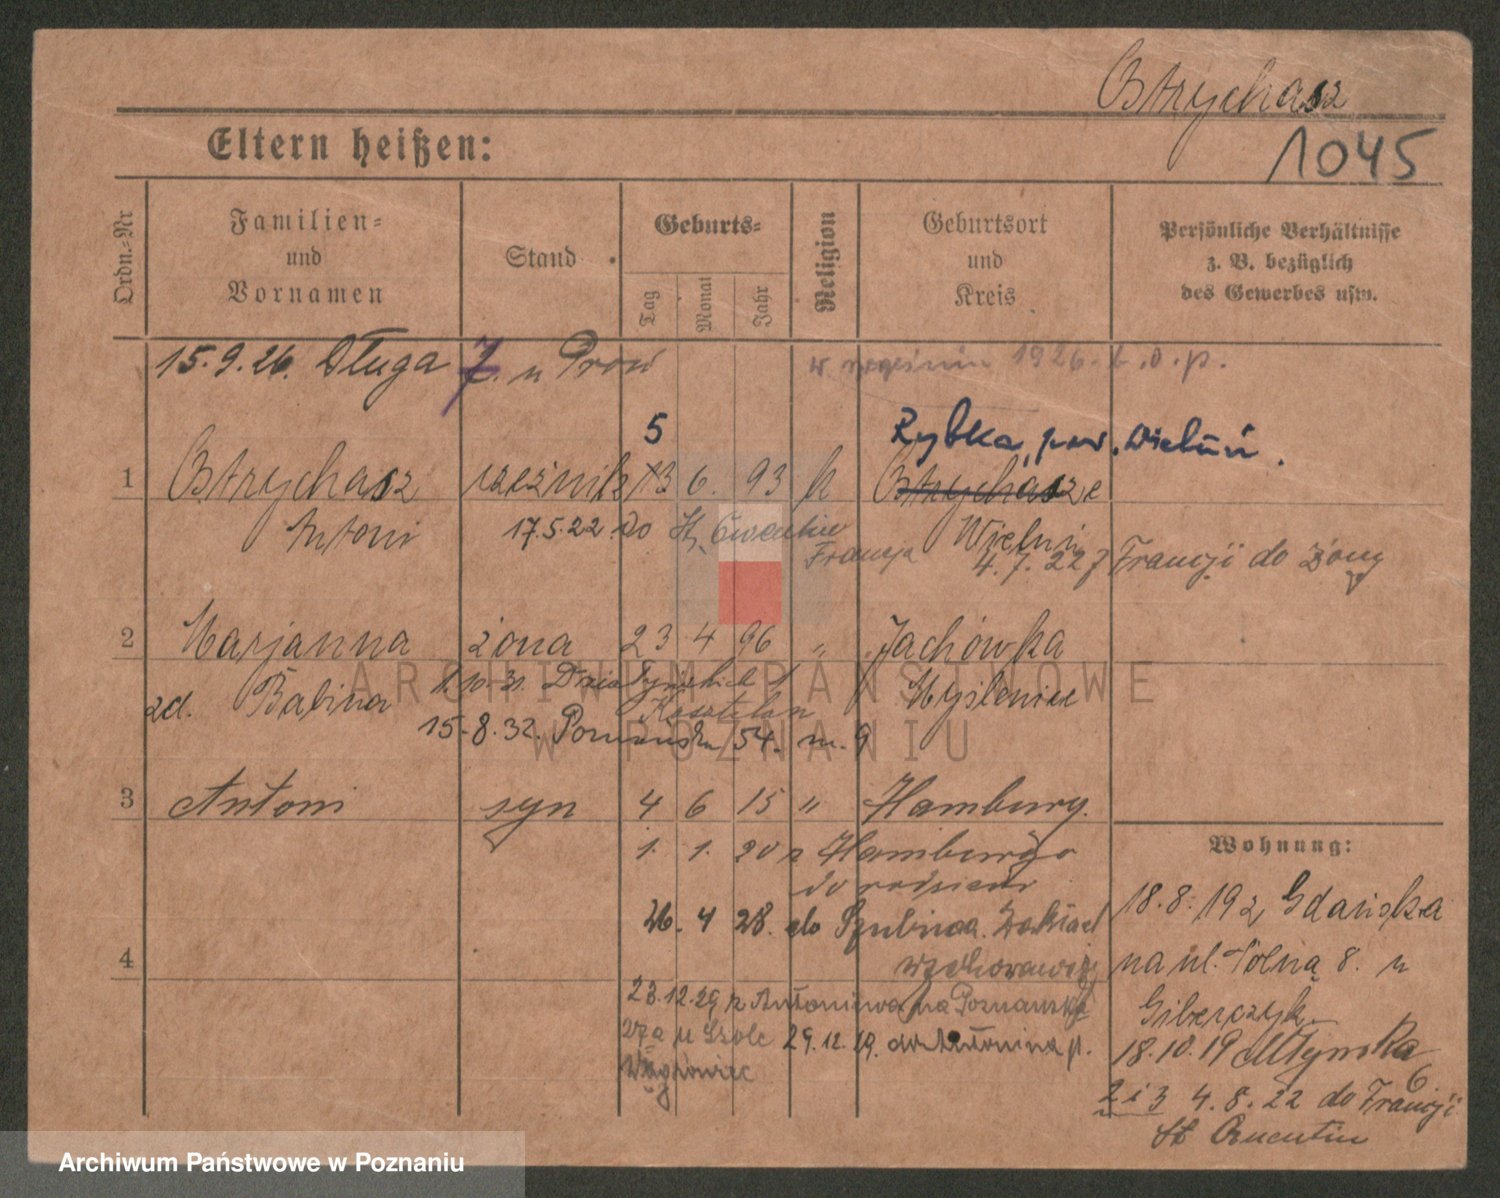 Ostrychasz
1045
Eltern heißen:
Ordn.-Nr
Familien-
und
Vornamen
Stand
Geburts-
Tag
Monat
Jahr
Religion
Geburtsort
und
Kreis
Persönliche Verhältnisse
z. B. bezüglich
des Gewerbes usw.
15.9.26. Długa 7. u
1926.
5
Rybka, pow. Wieluń.
1 Ostrychasz rzeźnik 13 6. 93 k Ostrychasze
Antoni 17.5.22. do St. Francja Wieluń
4.7.22 z Francji do żony
2 Marjanna żona 23 4 96 " Jachówka
zd. Babina 1.10.31. Działyńskich Myślenice
Kasztelan
15.8.32. Poznańska 54. m. 9
3 Antoni syn 4 6 15 " Hamburg.
1. 1. 20 z Hamburga
do rodziców
26. 4 28. do Szubina. Zakład
wychowawczy
4
23.12.29 z Antoniewa na Poznańską
u Szulc 29.12.29. do Antonina p.
Wągrowiec
Wohnung:
18.8.19 z Gdańska
na ul. Polną 8. u
Giberczyk
18.10.19 Młyńska
6
2 i 3 4.8.22 do Francji
St Quentin
ARCHIWUM PAŃSTWOWE
W POZNANIU
Archiwum Państwowe w Poznaniu